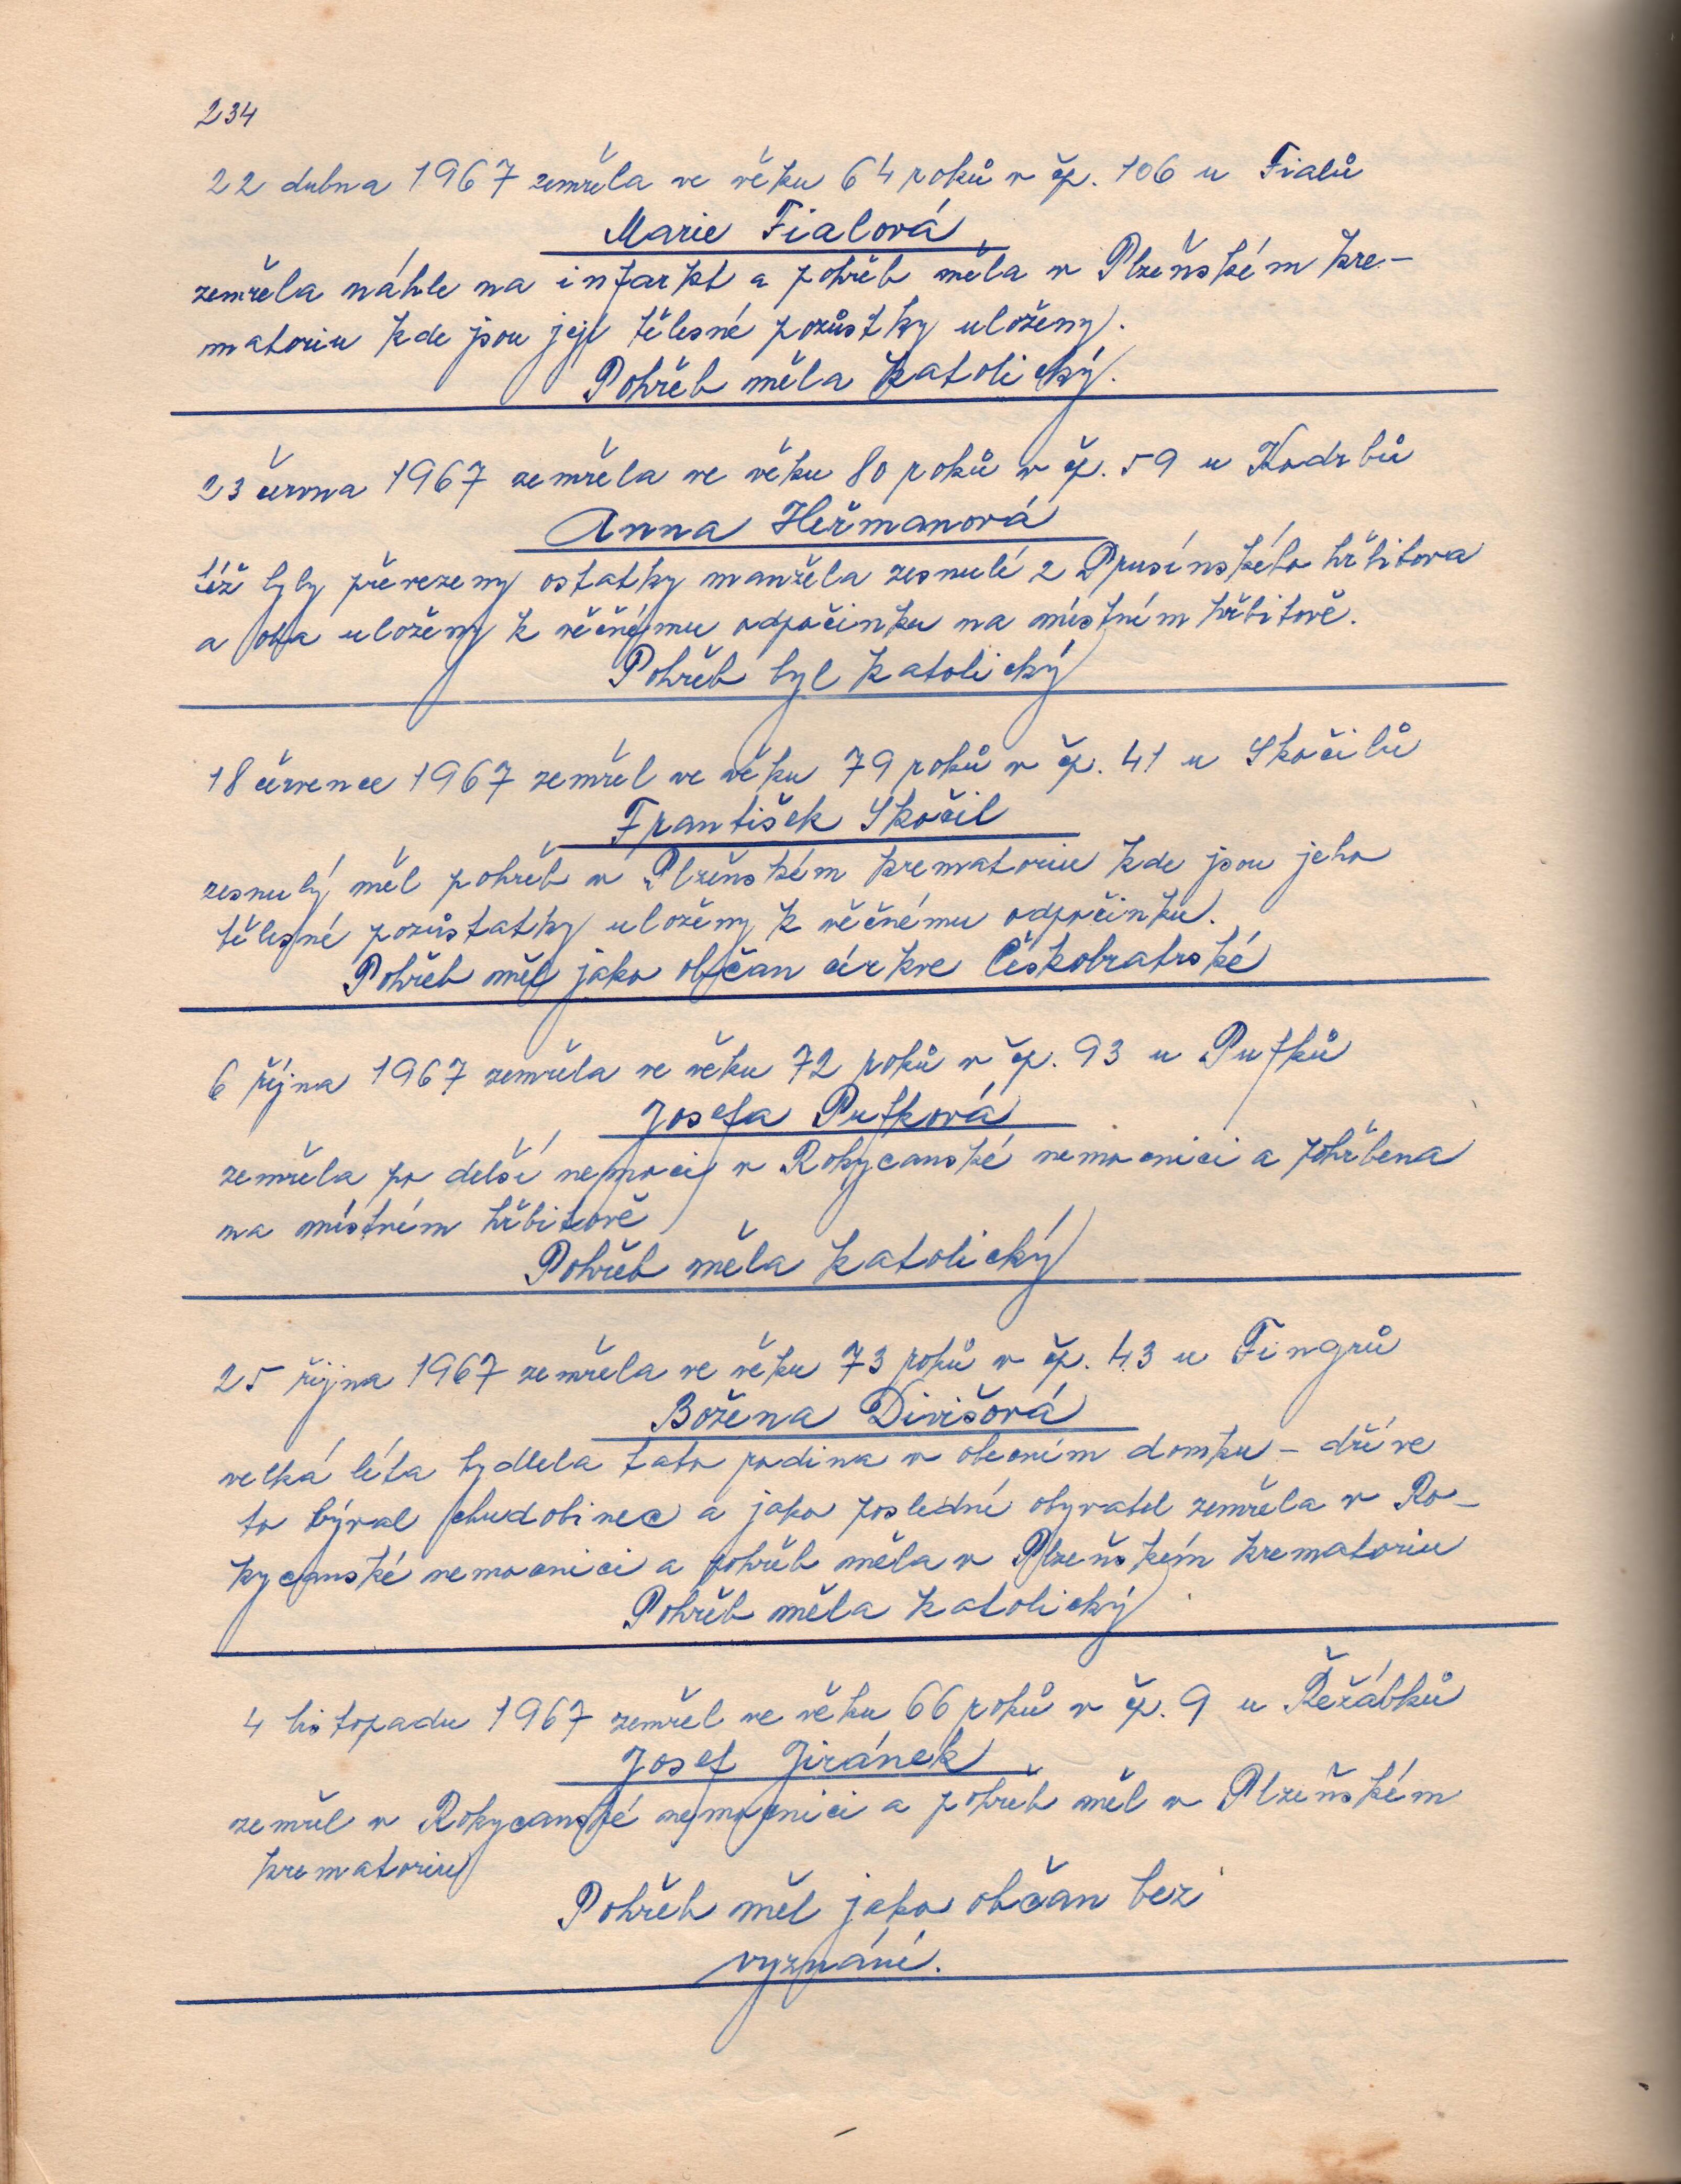 234
22 dubna 1967 zemřela ve věku 64 roků v čp. 106 u Fialů
Marie Fialová
zemřela náhle na infarkt a pohřeb měla v Plzeňském kre-
matoriu kde jsou její tělesné pozůstky uloženy.
Pohřeb měla katolický.
23 června 1967 zemřela ve věku 80 roků v čp. 59 u Kodrbů
Anna Heřmanová
též byly převezeny ostatky manžela zesnulé z Prusínského hřbitova
a oba uloženy k věčnému odpočinku na místním hřbitově.
Pohřeb byl katolický
18 července 1967 zemřel ve věku 79 roků v čp. 41 u Skočilů
František Skočil
zesnulý měl pohřeb v Plzeňském krematoriu kde jsou jeho
tělesné pozůstatky uloženy k věčnému odpočinku.
Pohřeb měl jako občan církve Českobratrské
6 října 1967 zemřela ve věku 72 roků v čp. 93 u Pufků
Josefa Pufková
zemřela po delší nemoci v Rokycanské nemocnici a pohřbena
na místném hřbitově
Pohřeb měla katolický
25 října 1967 zemřela ve věku 73 roků v čp. 43 u Fingrů
Božena Divišová
velká léta bydlela tato rodina v obecním domku - dříve
to býval chudobinec a jako poslední obyvatel zemřela v Ro-
kycanské nemocnici a pohřeb měla v Plzeňském krematoriu
Pohřeb měla katolický
4 listopadu 1967 zemřel ve věku 66 roků v čp. 9 u Řežábků
Josef Jiránek
zemřel v Rokycanské nemocnici a pohřeb měl v Plzeňském
krematoriu
Pohřeb měl jako občan bez
vyznání.